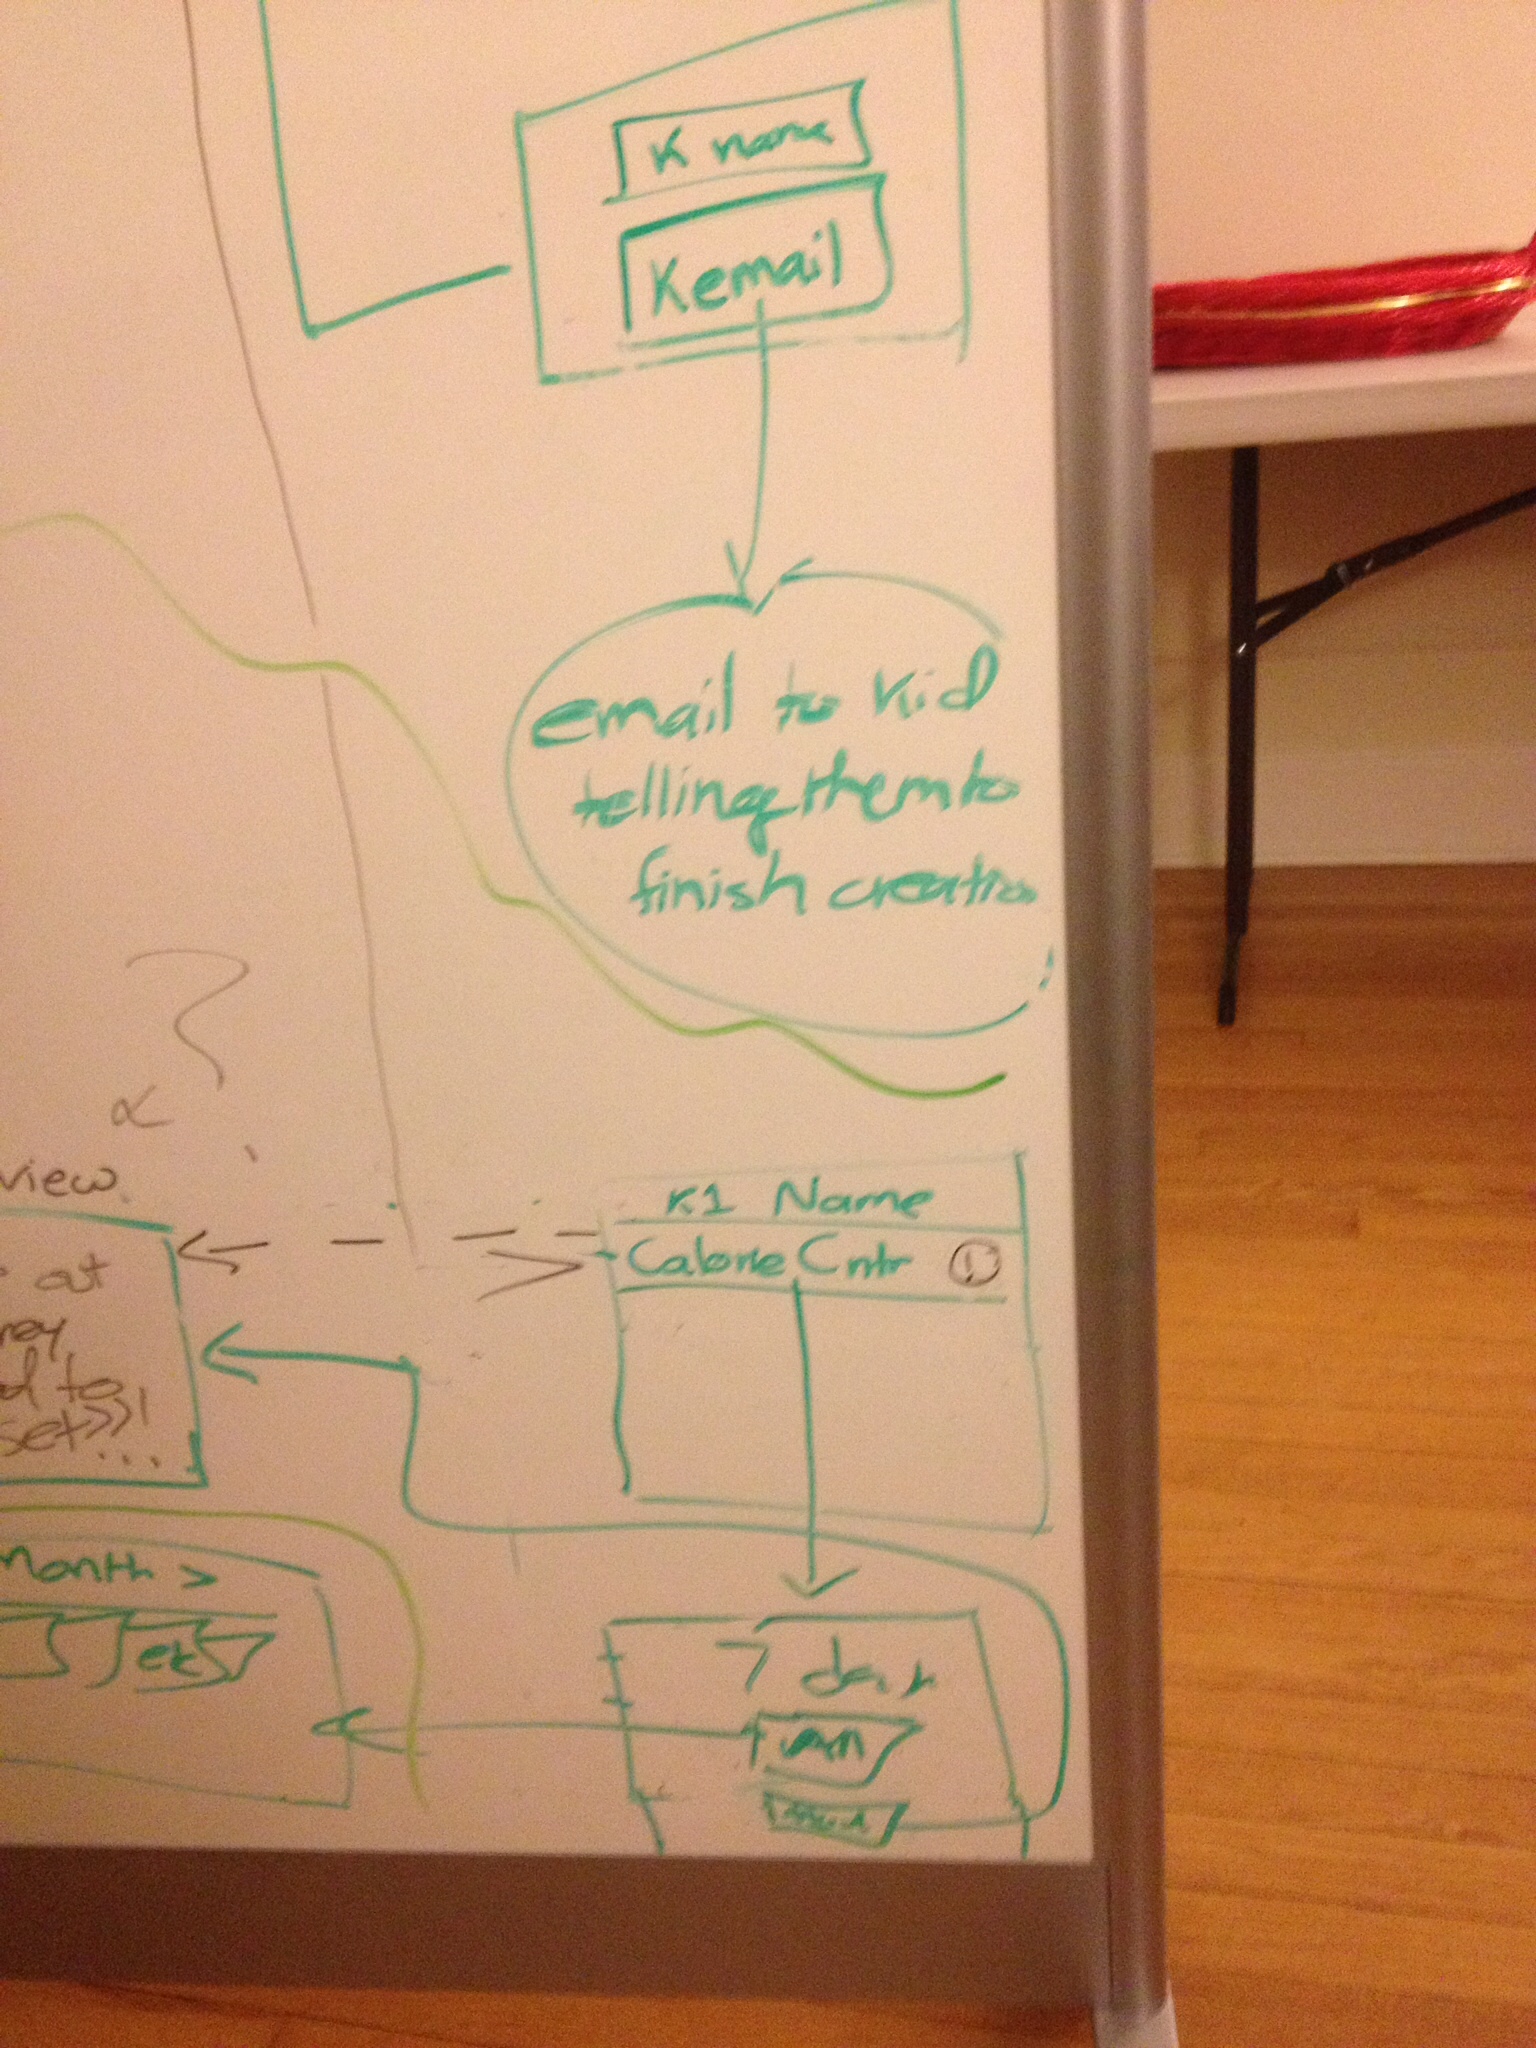 K name
Kemail
email to kid
telling them to
finish creation
?
view
at
K1 Name
Calorie Cntr !
to
set>>!
...
Month >
7 day